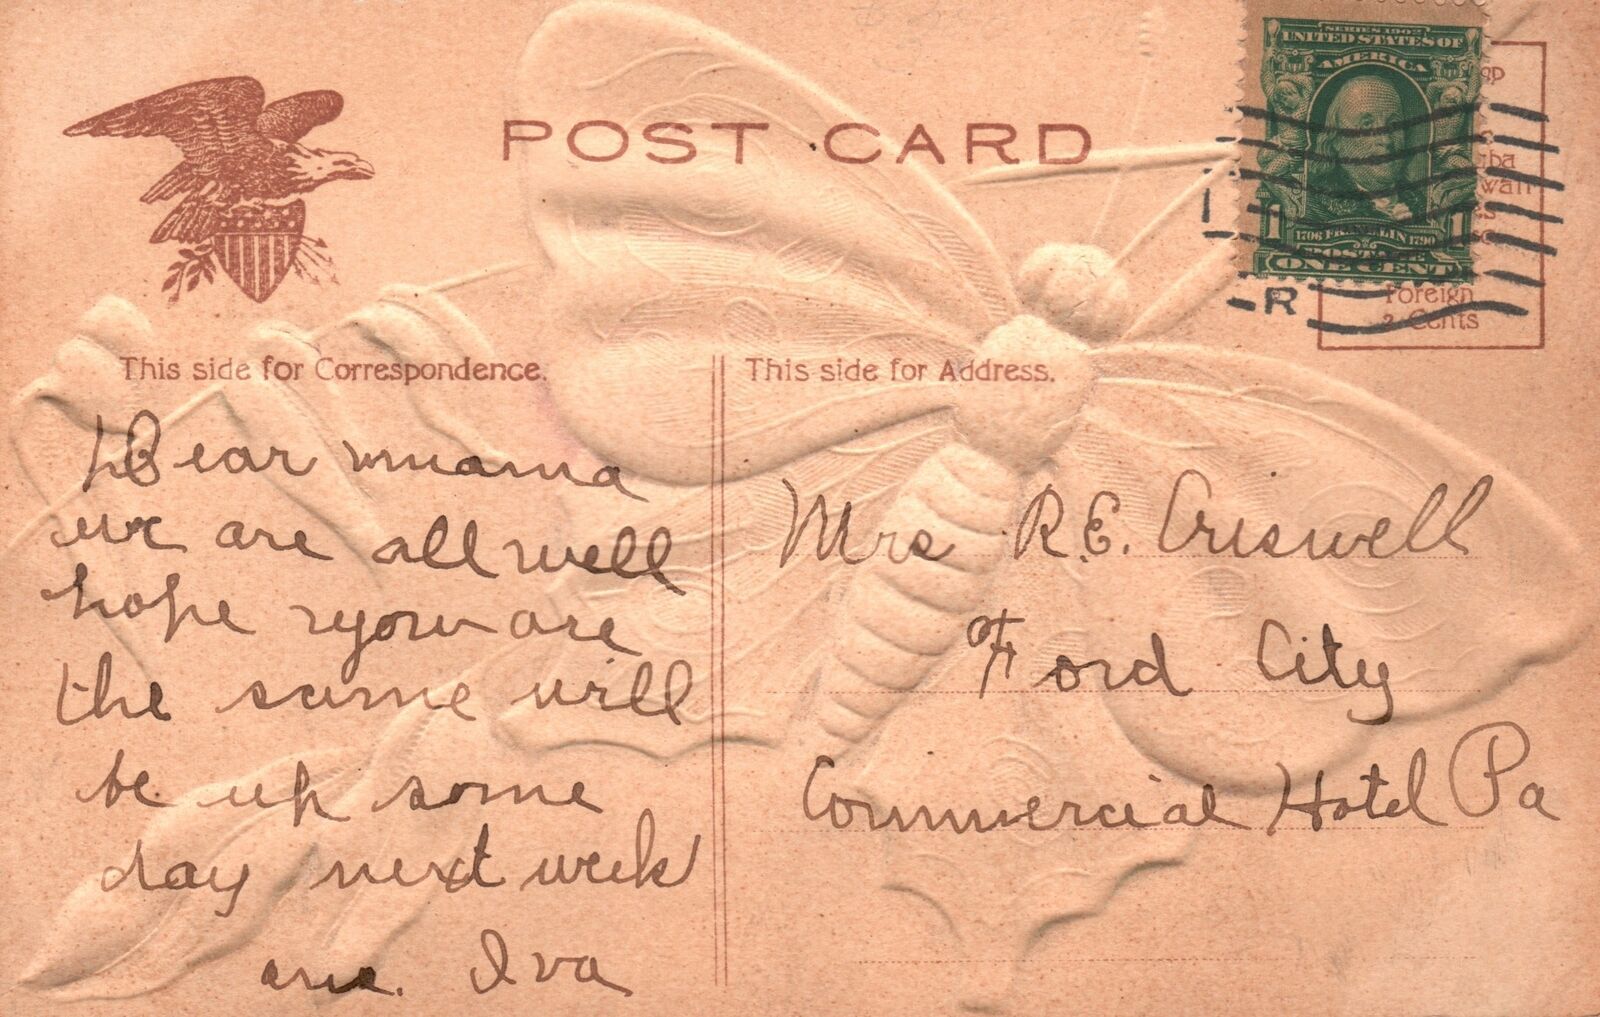 POST CARD
SERIES 1902
UNITED STATES OF
AMERICA
1 1706 FRANKLIN 1790 1
POSTAGE
ONE CENT
R
Foreign
2 Cents
This side for Correspondence.
Dear mama
we are all well
hope you are
the same will
be up some
day next week
Iva
This side for Address.
Mrs R.E. Criswell
Ford City
Commercial Hotel Pa